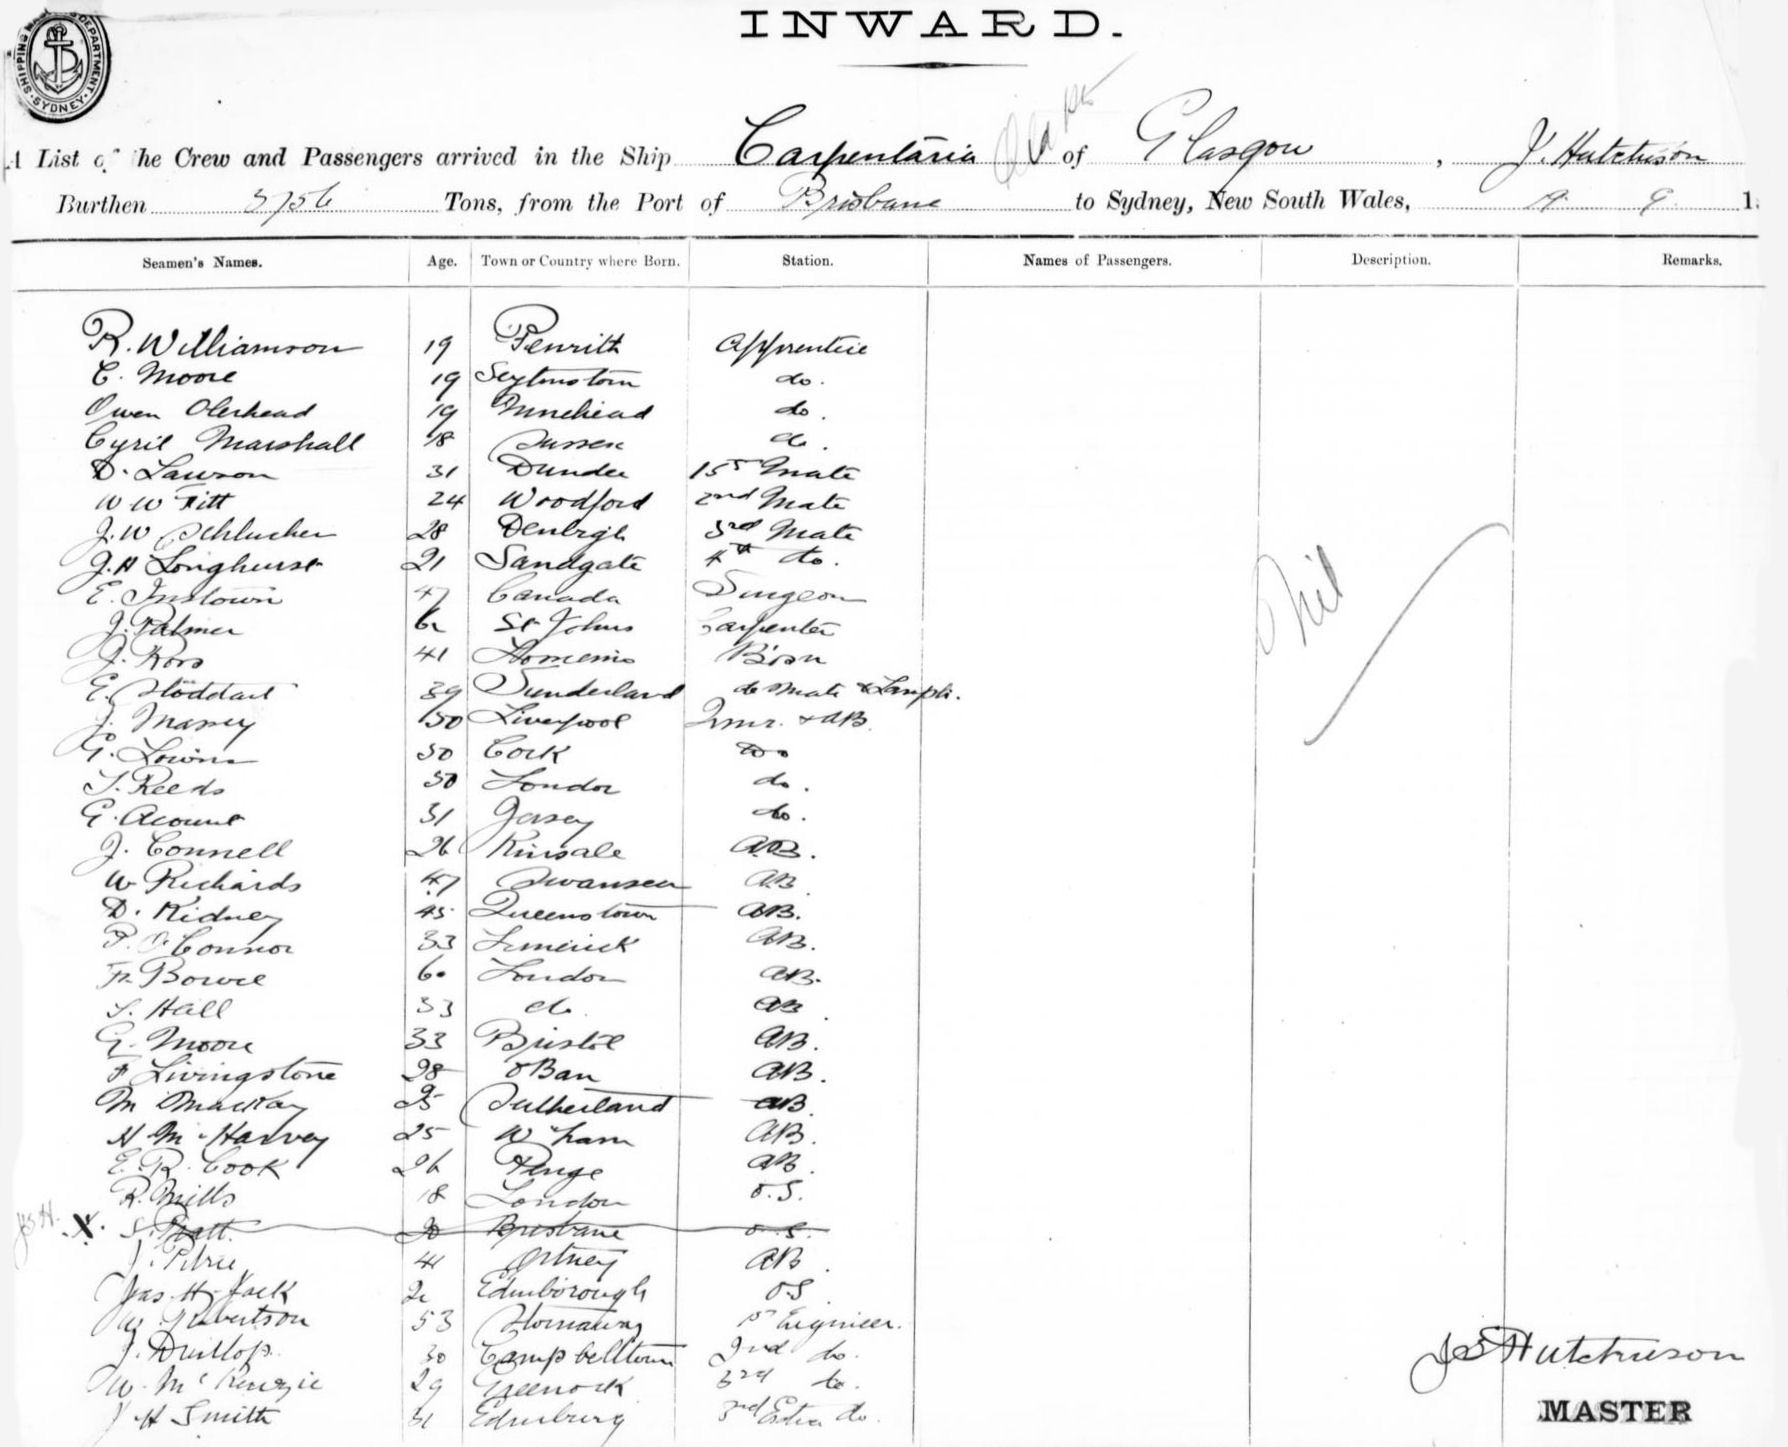 INWARD.
SHIPPING MASTERS DEPARTMENT SYDNEY
A List of the Crew and Passengers arrived in the Ship Carpentaria of Glasgow, J. Hutchison
Burthen 3756 Tons, from the Port of Brisbane to Sydney, New South Wales, 9
Seamen's Names. Age. Town or Country where Born. Station. Names of Passengers. Description. Remarks.
R. Williamson 19 Penrith Apprentice
C. Moore 19 do.
Owen Olerhead 19 Minehead do.
Cyril Marshall 18 Sussex do.
D. Lawson 31 Dundee 1st Mate
W W Titt 24 Woodford 2nd Mate
J. W 28 Denbigh 3rd Mate
J. H Longhurst 21 Sandgate 4th do.
E. 47 Canada Surgeon
J. Palmer St Johns Carpenter
J. Ross 41 Bosn
E. Stoddart 39 Sunderland do Mate & Lamps.
J. Massey 50 Liverpool Qmr. & AB
G. 50 Cork do
T. Reeds 50 London do.
G. Acourt 31 Jersey do.
J. Connell 26 Kinsale AB.
W Richards 47 Swansea AB
D. Kidney 45 Queenstown AB.
P. O'Connor 33 Limerick AB.
Fr Bowie 60 London AB.
S. Hall 33 do. AB.
G. Moore 33 Bristol AB.
F Livingstone 28 OBan AB.
M Mackay 25 Sutherland AB
H M. Harvey 25 W'ham AB.
E. R. Cook 26 Penge AB.
R. Mills 18 London O.S.
JSH. X. S. Pratt. 20 Brisbane O.S.
J. Petrie 41 Orkney AB.
Jas. H. Jack Edinborough OS
W. Robertson 53 Stornaway 1st Engineer.
J. Dunlop. 30 Campbelltown 2nd do.
W. McKenzie 29 Greenock 3rd do.
J H Smith 31 Edinburg 3rd Extra do.
Nil
JS Hutchison
MASTER